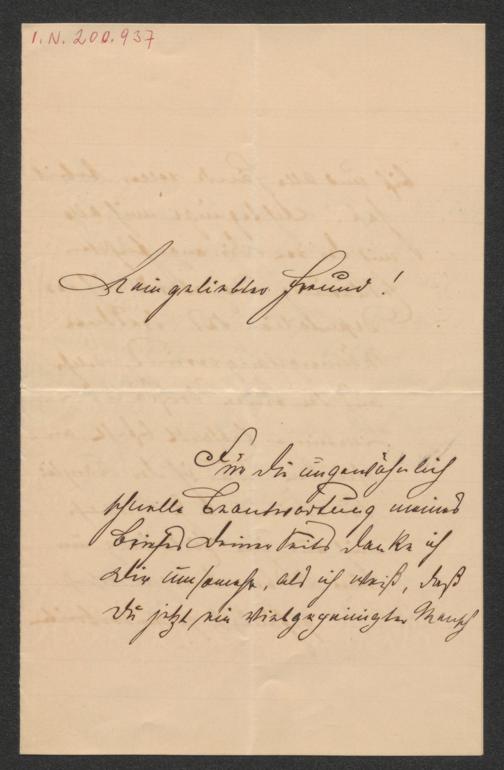 I.N. 200.937
Mein geliebter Freund!
Für die ungewöhnlich
schnelle Beantwortung meines
Briefes Deinerseits danke ich
Dir umsomehr, als ich weiß, daß
Du jetzt ein vielgepeinigter Mensch